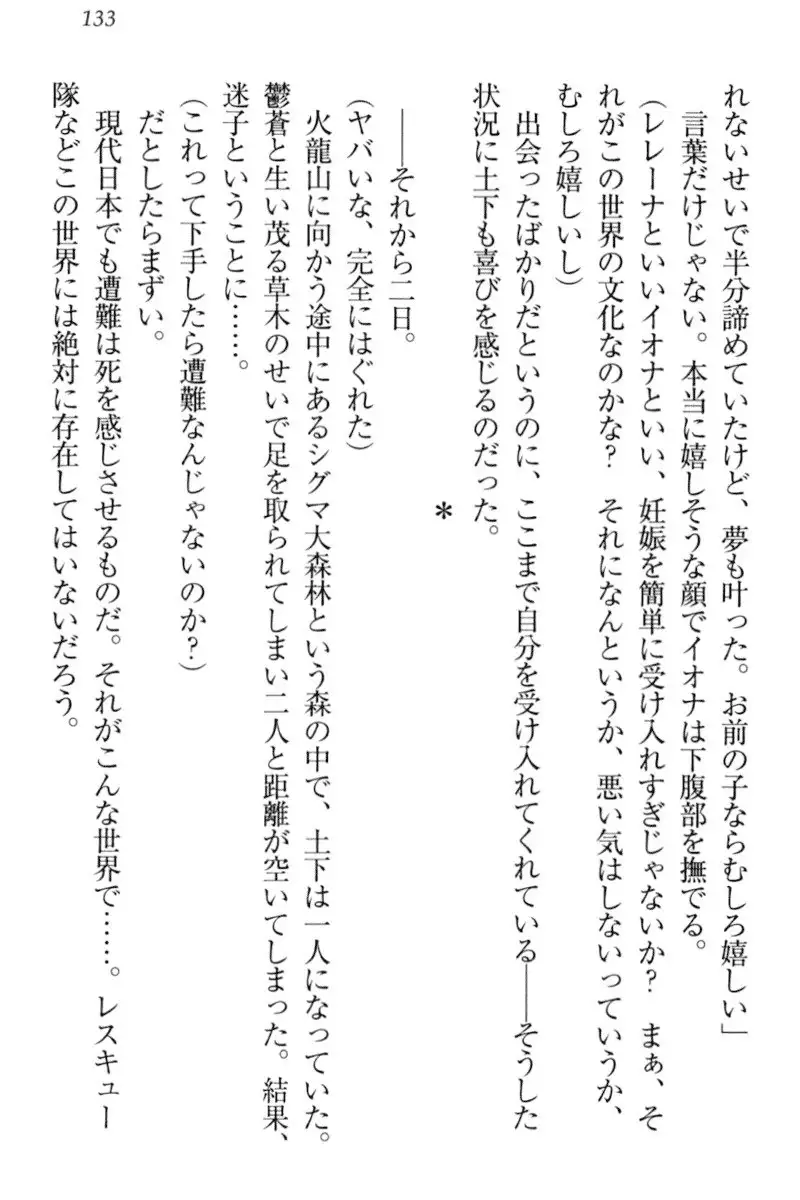 133
れないせいで半分諦めていたけど、夢も叶った。お前の子ならむしろ嬉しい」
言葉だけじゃない。本当に嬉しそうな顔でイオナは下腹部を撫でる。
(レレーナといいイオナといい、妊娠を簡単に受け入れすぎじゃないか?　まぁ、そ
れがこの世界の文化なのかな?　それになんというか、悪い気はしないっていうか、
むしろ嬉しいし)
出会ったばかりだというのに、ここまで自分を受け入れてくれている――そうした
状況に土下も喜びを感じるのだった。
*
――それから二日。
(ヤバいな、完全にはぐれた)
火龍山に向かう途中にあるシグマ大森林という森の中で、土下は一人になっていた。
鬱蒼と生い茂る草木のせいで足を取られてしまい二人と距離が空いてしまった。結果、
迷子ということに……。
(これって下手したら遭難なんじゃないのか?)
だとしたらまずい。
現代日本でも遭難は死を感じさせるものだ。それがこんな世界で……。レスキュー
隊などこの世界には絶対に存在してはいないだろう。